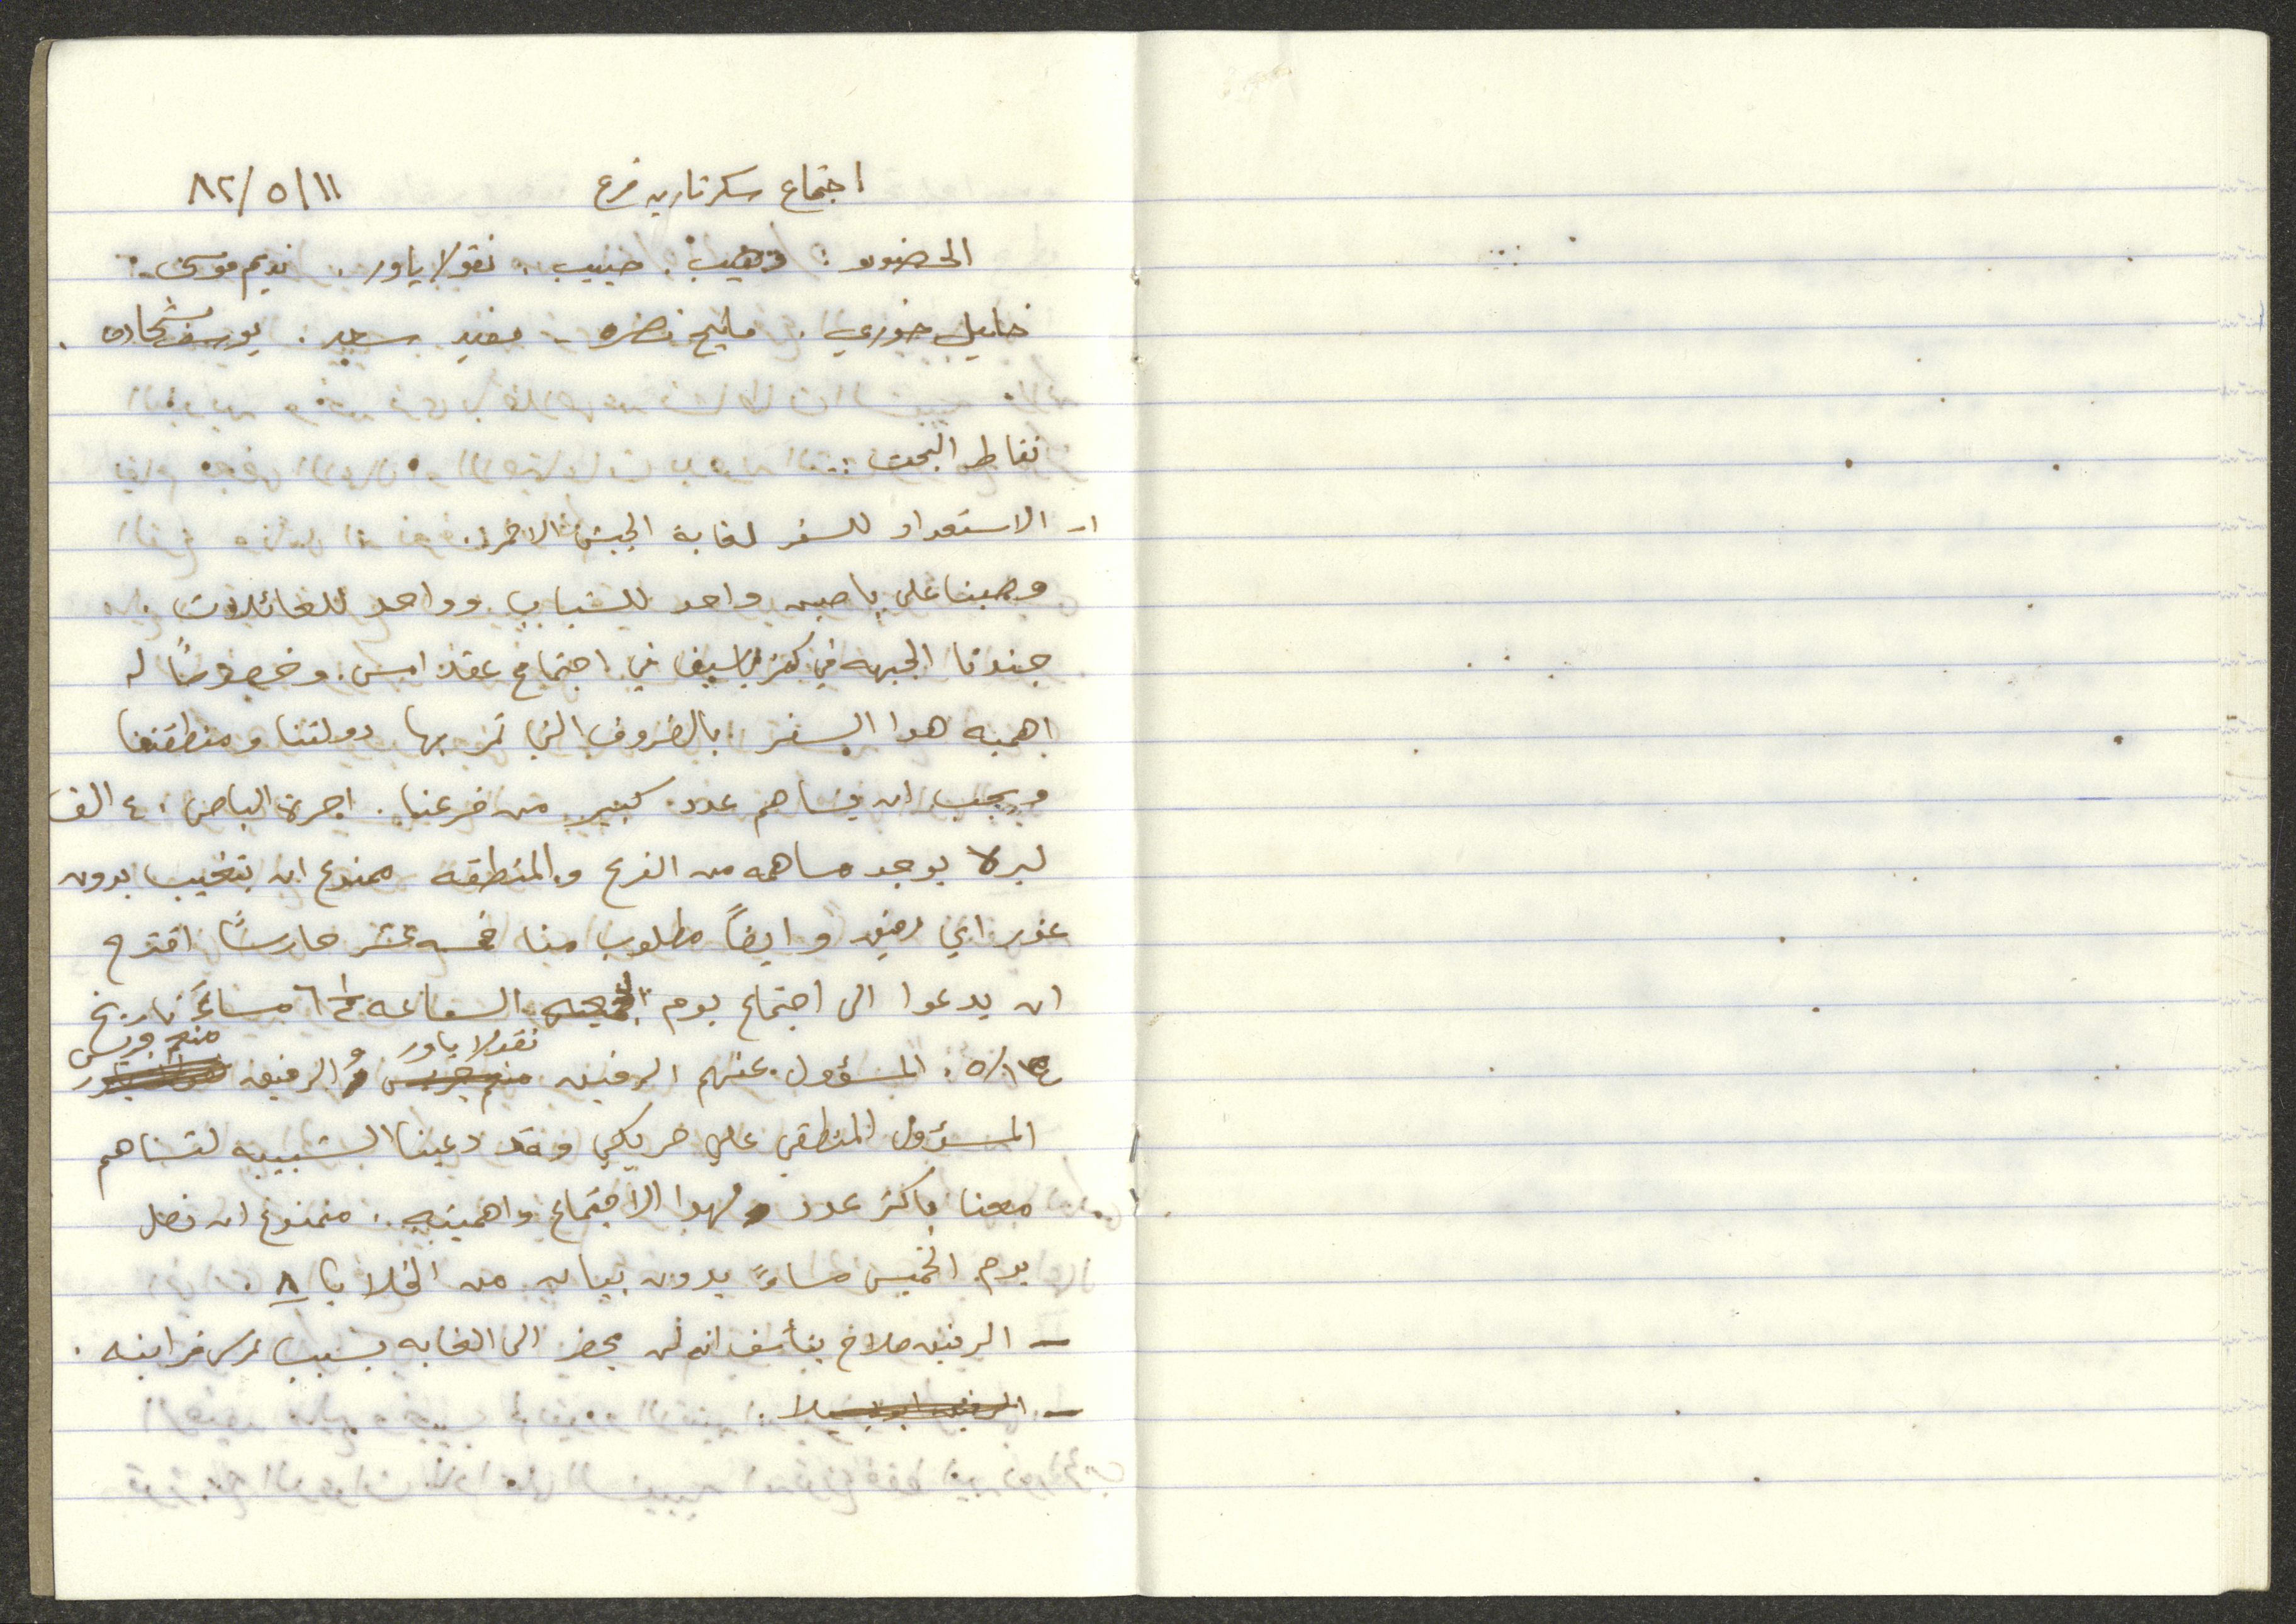 اجتماع سكرتاريه فرع ١١/٥/٨٢
الحضور: وهيب. حبيب. نقولا ياور. نديم موسى.
خليل خوري. مليح نصره - مفيد سعد. يوسف شحاده.
نقاط البحث:
١- الاستعداد للسفر لغابة الجيش الاحمر.
وصينا على باصين واحد للشباب وواحد للعائلات.
جندونا الجبهه في كفر ياسيف في اجتماع عقد امس. وخصوصًا لـ
اهميه هدا السفر بالضروف التي تمر بها دولتنا ومنطقتنا
ويجب ان يساهم عدد كبير من فرعنا. اجرة الباص ٤ الف
ليره يوجد مساهمه من الفرع والمنطقه ممنوع ان يتغيب بدون
عذر اي رفيق وايضاً مطلوب منا خمسه عشر حارسًا اقترح
ان يدعوا الى اجتماع يوم الساعه ٦½ مساءً تاريخ
١٤/٥. المسؤول عنهم الرفيق نقولا ياور والرفيق منعم جريس
المسؤول المنطقي علي خريكي وقد دعينا الشبيبه لتساهم
معنا باكثر عدد لهدا الاجتماع واهميته. ممنوع ان نصل
يوم الخميس مساءً بدون بيان من الخلايا ٨.
- الرفيق صلاح يتأسف انه لن يحضر الى الغابه بسبب عرس قرابنه.
- الرفيق ابو